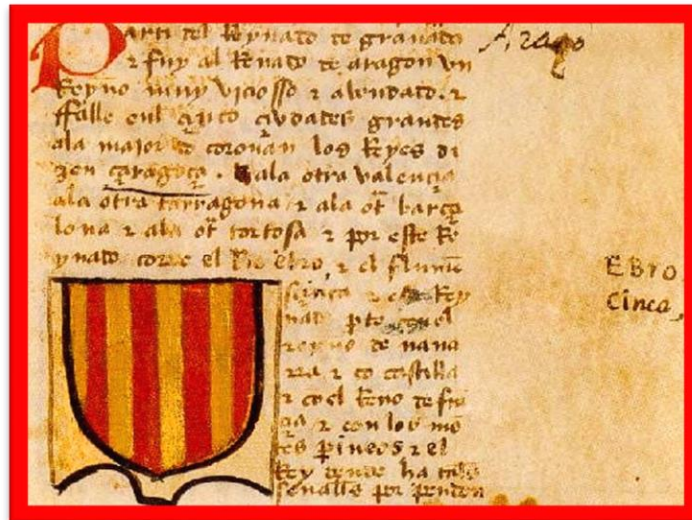 Parti del Reynado de granado
Arago
r fuy al Renado de aragon vn
Reyno muy viciosso r abondado. r
ffalle enl çinco çiudades grandes
ala maior do coronan los Reyes di
zen çaragoça. Eala otra valencia
ala otra tarragona r ala ot barçe
lona r ala ot tortosa r por este Re
ynado corre el Rio ebro, r el flumē
EBro
Cinca
çinca r este Rey
nado
reyno de naua
rra r co castilla
r co el Reno de frā
çia r con los mō
tes pineos r el
Rey dende ha tales
señales por pendon